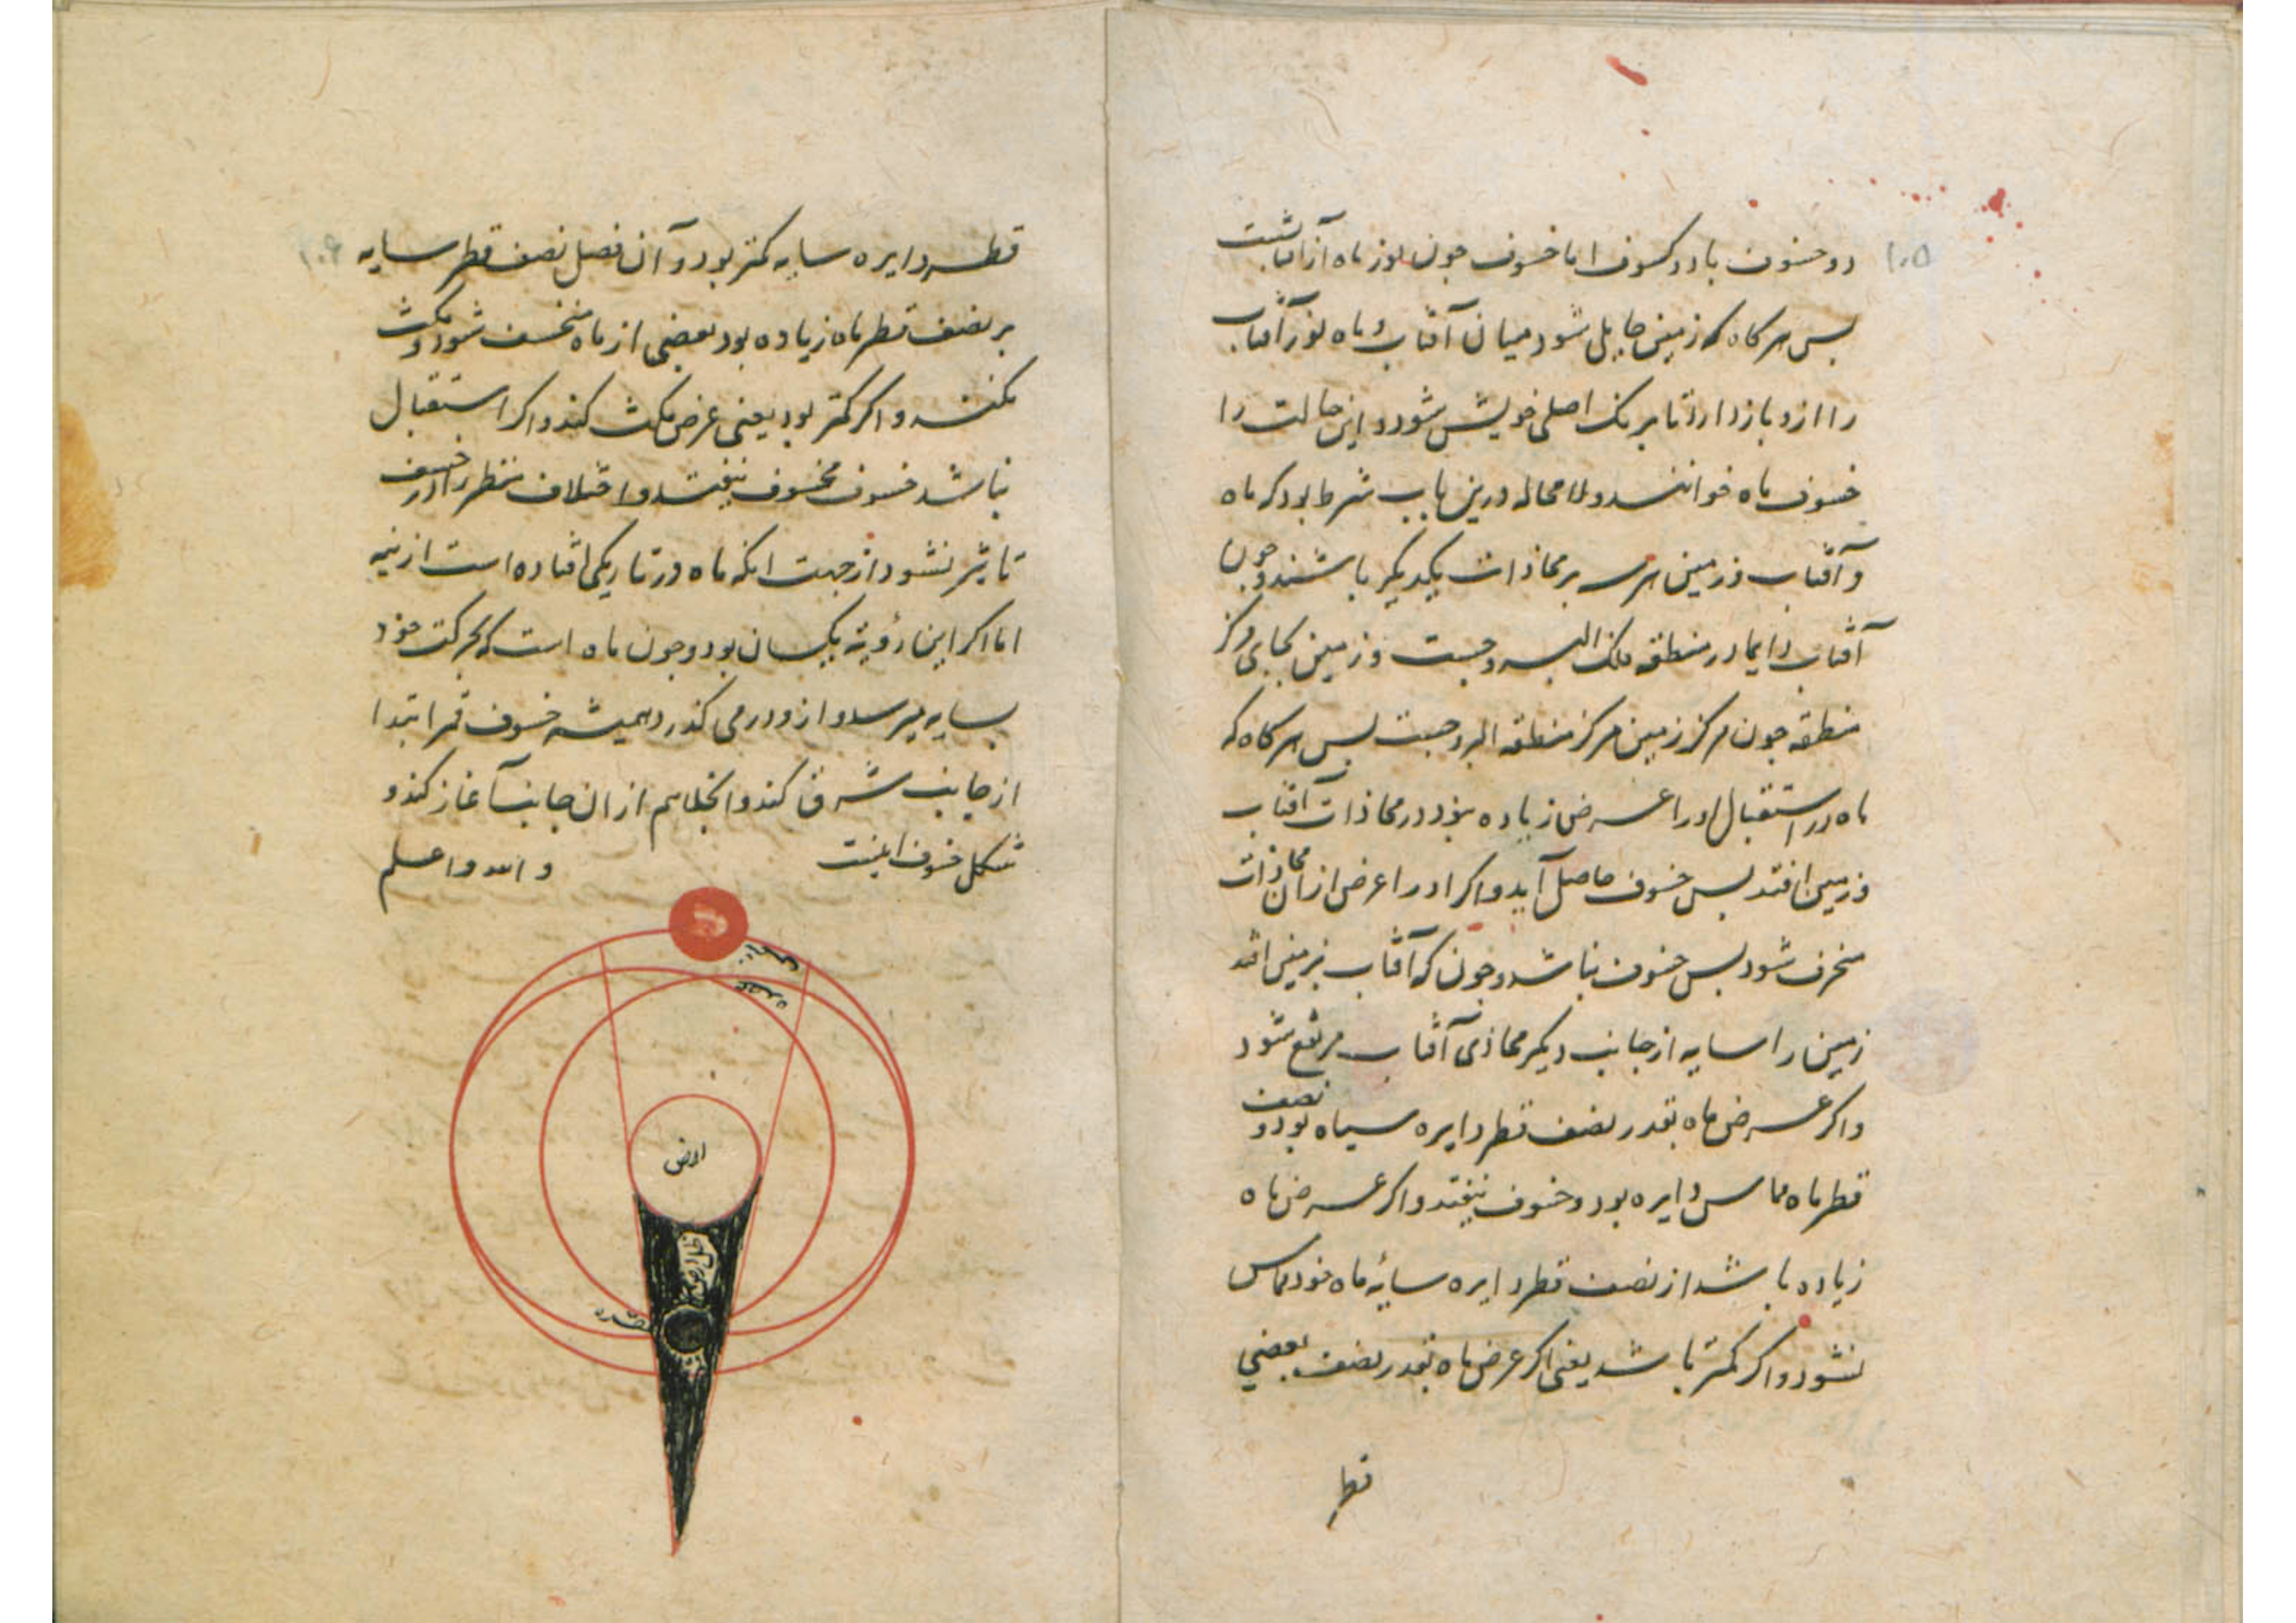 ۱۰۵
دو خسوف یا دو کسوف اما خسوف جون نور ماه از آفتابست
بس هر کاه که زمین حایل شود میان آفتاب و ماه نور آفتاب
را ازو باز دارد تا برنک اصلی خویش شود و این حالت را
خسوف ماه خوانند و لا محاله درین باب شرط بود که ماه
و آفتاب و زمین هر سه بر محاذات یکدیکر باشند و جون
آفتاب دایما در منطقه فلک البروجست و زمین بجای مرکز
منطقه جون مرکز زمین مرکز منطقه البروجست بس هر کاه که
ماه در استقبال اورا عرض زیاده نبود در محاذات آفتاب
و زمین افتد بس خسوف حاصل آید و اکر اورا عرض از ان محاذات
منحرف شود بس خسوف نباشد و جون که آفتاب بزمین افتد
زمین را سایه از جانب دیکر محاذی آفتاب مرتفع شود
و اکر عرض ماه بقدر نصف قطر دایره سیاه بود و نصف
قطر ماه مماس دایره بود و خسوف نیفتد و اکر عرض ماه
زیاده باشد از نصف قطر دایره سایٔه ماه خود مماس
نشود و اکر کمتر باشد یعنی اکر عرض ماه بقدر نصف بعضی
قطر
۱۰۶
قطر دایره سایه کمتر بود و آن فصل نصف قطر سایه
بر نصف قطر ماه زیاده بود بعضی از ماه منخسف شود و مکث
نکند و اکر کمتر بود یعنی عرض مکث کند و اکر استقبال
نباشد خسوف مخسوف نیفتد و اختلاف منظر را در خسوف
تاثیر نشود از جهت انکه ماه در تاریکی افتاده است از نیمه
اما اکر این رؤیة یکسان بود و جون ماه است که بحرکت خود
بسایه میرسد و ازو در می کذرد همیشه خسوف قمر ابتدا
از جانب شرق کند و انجلا هم از ان جانب آغاز کند و
شکل خسوف اینست و الله و اعلم
عقده
ارض
ظل ارض
عقده